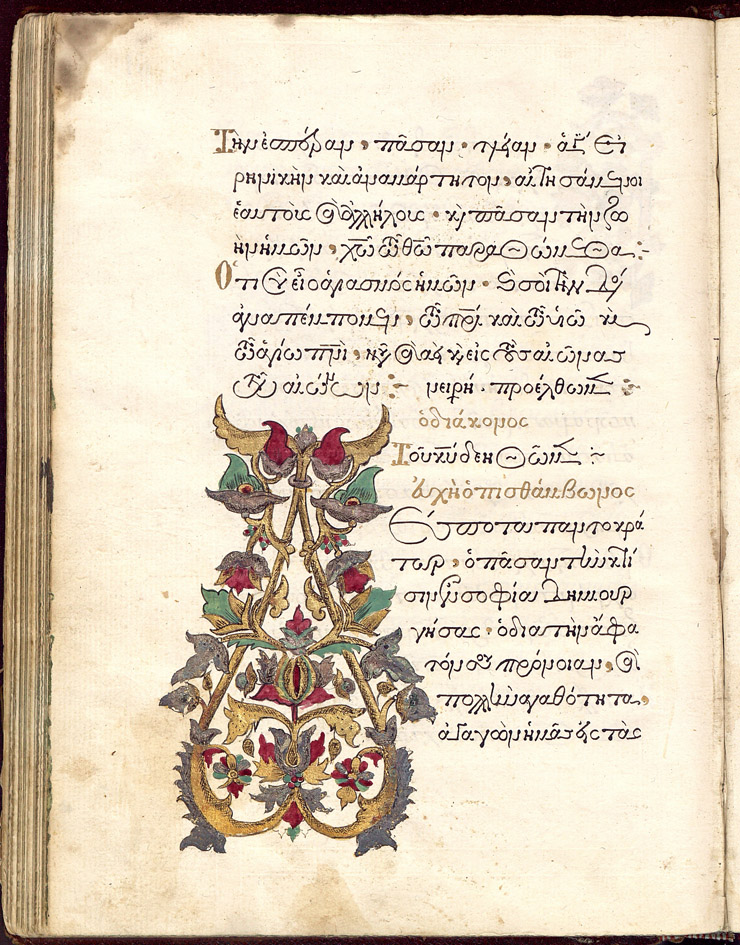 Τὴν ἑσπέραν, πᾶσαν · τελείαν · ἁγί Εἰ
ρηνικὴν καὶ ἀναμάρτητον, αἰτησάμενοι
ἑαυτοὺς καὶ ἀλλήλους · κ̀ πᾶσαν τὴν ζω
ὴν ἡμῶν, χω τῶ θω παραθώμεθα :~
Ὅτι σὺ εἶ ὁ ἁγιασμὸς ἡμῶν · κ̀ σοὶ τὴν δόξ
ἀναπέμπομεν, τῶ πρι καὶ τῶ υἱῶ κ̀
τῶ ἁγίω πνι, νῦν καὶ ἀεὶ κ̀ εἰς τοὺς αἰῶνας
τῶν αἰώνων :~ ἐν εἰρή · προέλθωμεν :~
ὁ διάκονος
Τοῦ κυ δεηθῶμεν :~
εὐχὴ ὀπισθάμβωνος
Δέσποτα παντοκρά
τωρ, ὁ πᾶσαν τὴν κτί
σιν ἐν σοφία δημιουρ
γήσας · ὁ διὰ τὴν ἄφα
τόν σου πρόνοιαν, καὶ
πολλὴν ἀγαθότητα,
ἀγαγὼν ἡμᾶς εἰς τὰς